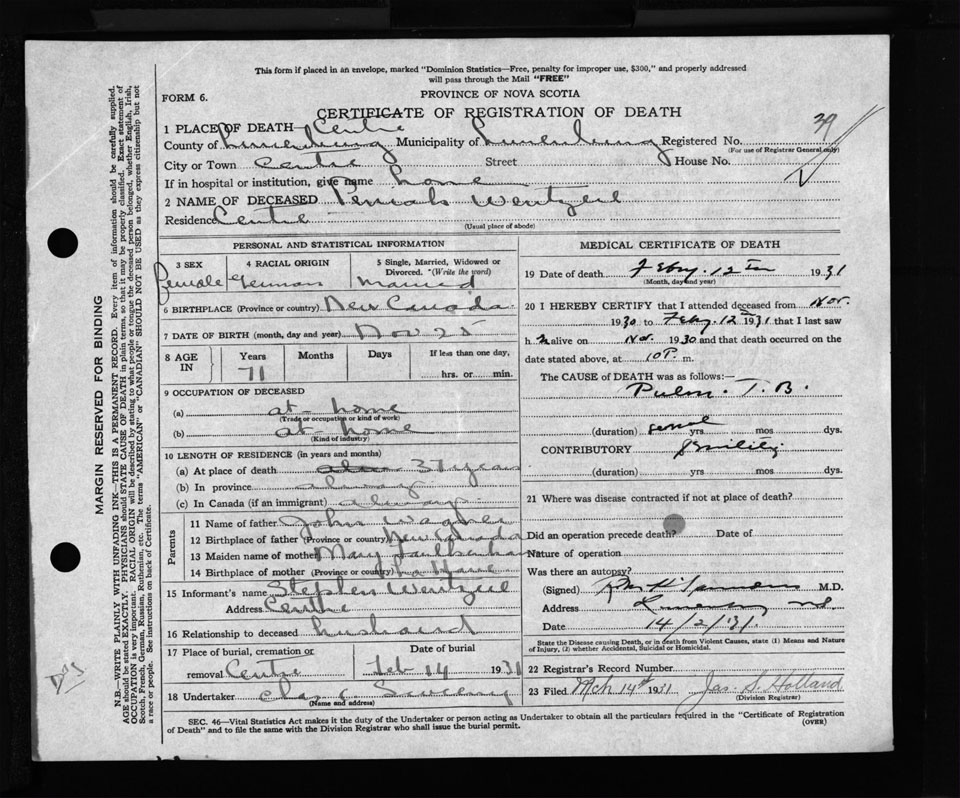 This form if placed in an envelope, marked "Dominion Statistics—Free, penalty for improper use, $300," and properly addressed
will pass through the Mail "FREE"
PROVINCE OF NOVA SCOTIA
FORM 6.
CERTIFICATE OF REGISTRATION OF DEATH
39
1 PLACE OF DEATH Centre
County of Lunenburg Municipality of Lunenburg Registered No.
(For use of Registrar General only)
City or Town Centre Street House No.
If in hospital or institution, give name home
2 NAME OF DECEASED Wentzell
Residence Centre
(Usual place of abode)
PERSONAL AND STATISTICAL INFORMATION
3 SEX 4 RACIAL ORIGIN 5 Single, Married, Widowed or
Divorced. (Write the word)
Female German Married
6 BIRTHPLACE (Province or country) New Canada
7 DATE OF BIRTH (month, day and year) Nov 25
8 AGE IN Years Months Days If less than one day,
71 hrs. or min.
9 OCCUPATION OF DECEASED
(a) at home
(Trade or occupation or kind of work)
(b) at home
(Kind of industry)
10 LENGTH OF RESIDENCE (in years and months)
(a) At place of death 37 years
(b) In province always
(c) In Canada (if an immigrant) always
Parents
11 Name of father John Wagner
12 Birthplace of father (Province or country) New Canada
13 Maiden name of mother Mary
14 Birthplace of mother (Province or country)
15 Informant's name Stephen Wentzell
Address Centre
16 Relationship to deceased husband
17 Place of burial, cremation or Date of burial
removal Centre Feb 14 1931
18 Undertaker Chas
(Name and address)
MEDICAL CERTIFICATE OF DEATH
19 Date of death Feby. 12 1931
(Month, day and year)
20 I HEREBY CERTIFY that I attended deceased from Nov.
1930 to Feby. 12 1931 that I last saw
h alive on Nov. 1930 and that death occurred on the
date stated above, at 10 P. m.
The CAUSE of DEATH was as follows:—
Pulm. T. B.
(duration) yrs mos dys.
CONTRIBUTORY
(duration) yrs mos dys.
21 Where was disease contracted if not at place of death?
Did an operation precede death? Date of
Nature of operation
Was there an autopsy?
(Signed) M.D.
Address
Date 14/2/31
State the Disease causing Death, or in death from Violent Causes, state (1) Means and Nature
of Injury, (2) whether Accidental, Suicidal or Homicidal.
22 Registrar's Record Number
23 Filed Mch 14th 1931 Jas S Holland
(Division Registrar)
SEC. 46—Vital Statistics Act makes it the duty of the Undertaker or person acting as Undertaker to obtain all the particulars required in the "Certificate of Registration
of Death" and to file the same with the Division Registrar who shall issue the burial permit.
(OVER)
MARGIN RESERVED FOR BINDING
N.B.—WRITE PLAINLY WITH UNFADING INK—THIS IS A PERMANENT RECORD. Every item of information should be carefully supplied.
AGE should be stated EXACTLY. PHYSICIANS should STATE CAUSE OF DEATH in plain terms, so that it may be properly classified. Exact statement of
OCCUPATION is very important. RACIAL ORIGIN will be described by stating to what people or tongue the deceased person belonged, whether English, Irish,
Scotch, French, German, Russian, Ruthenian, etc. The terms "AMERICAN" or "CANADIAN" SHOULD NOT BE USED as they express citizenship but not
a race or people. See instructions on back of Certificate.